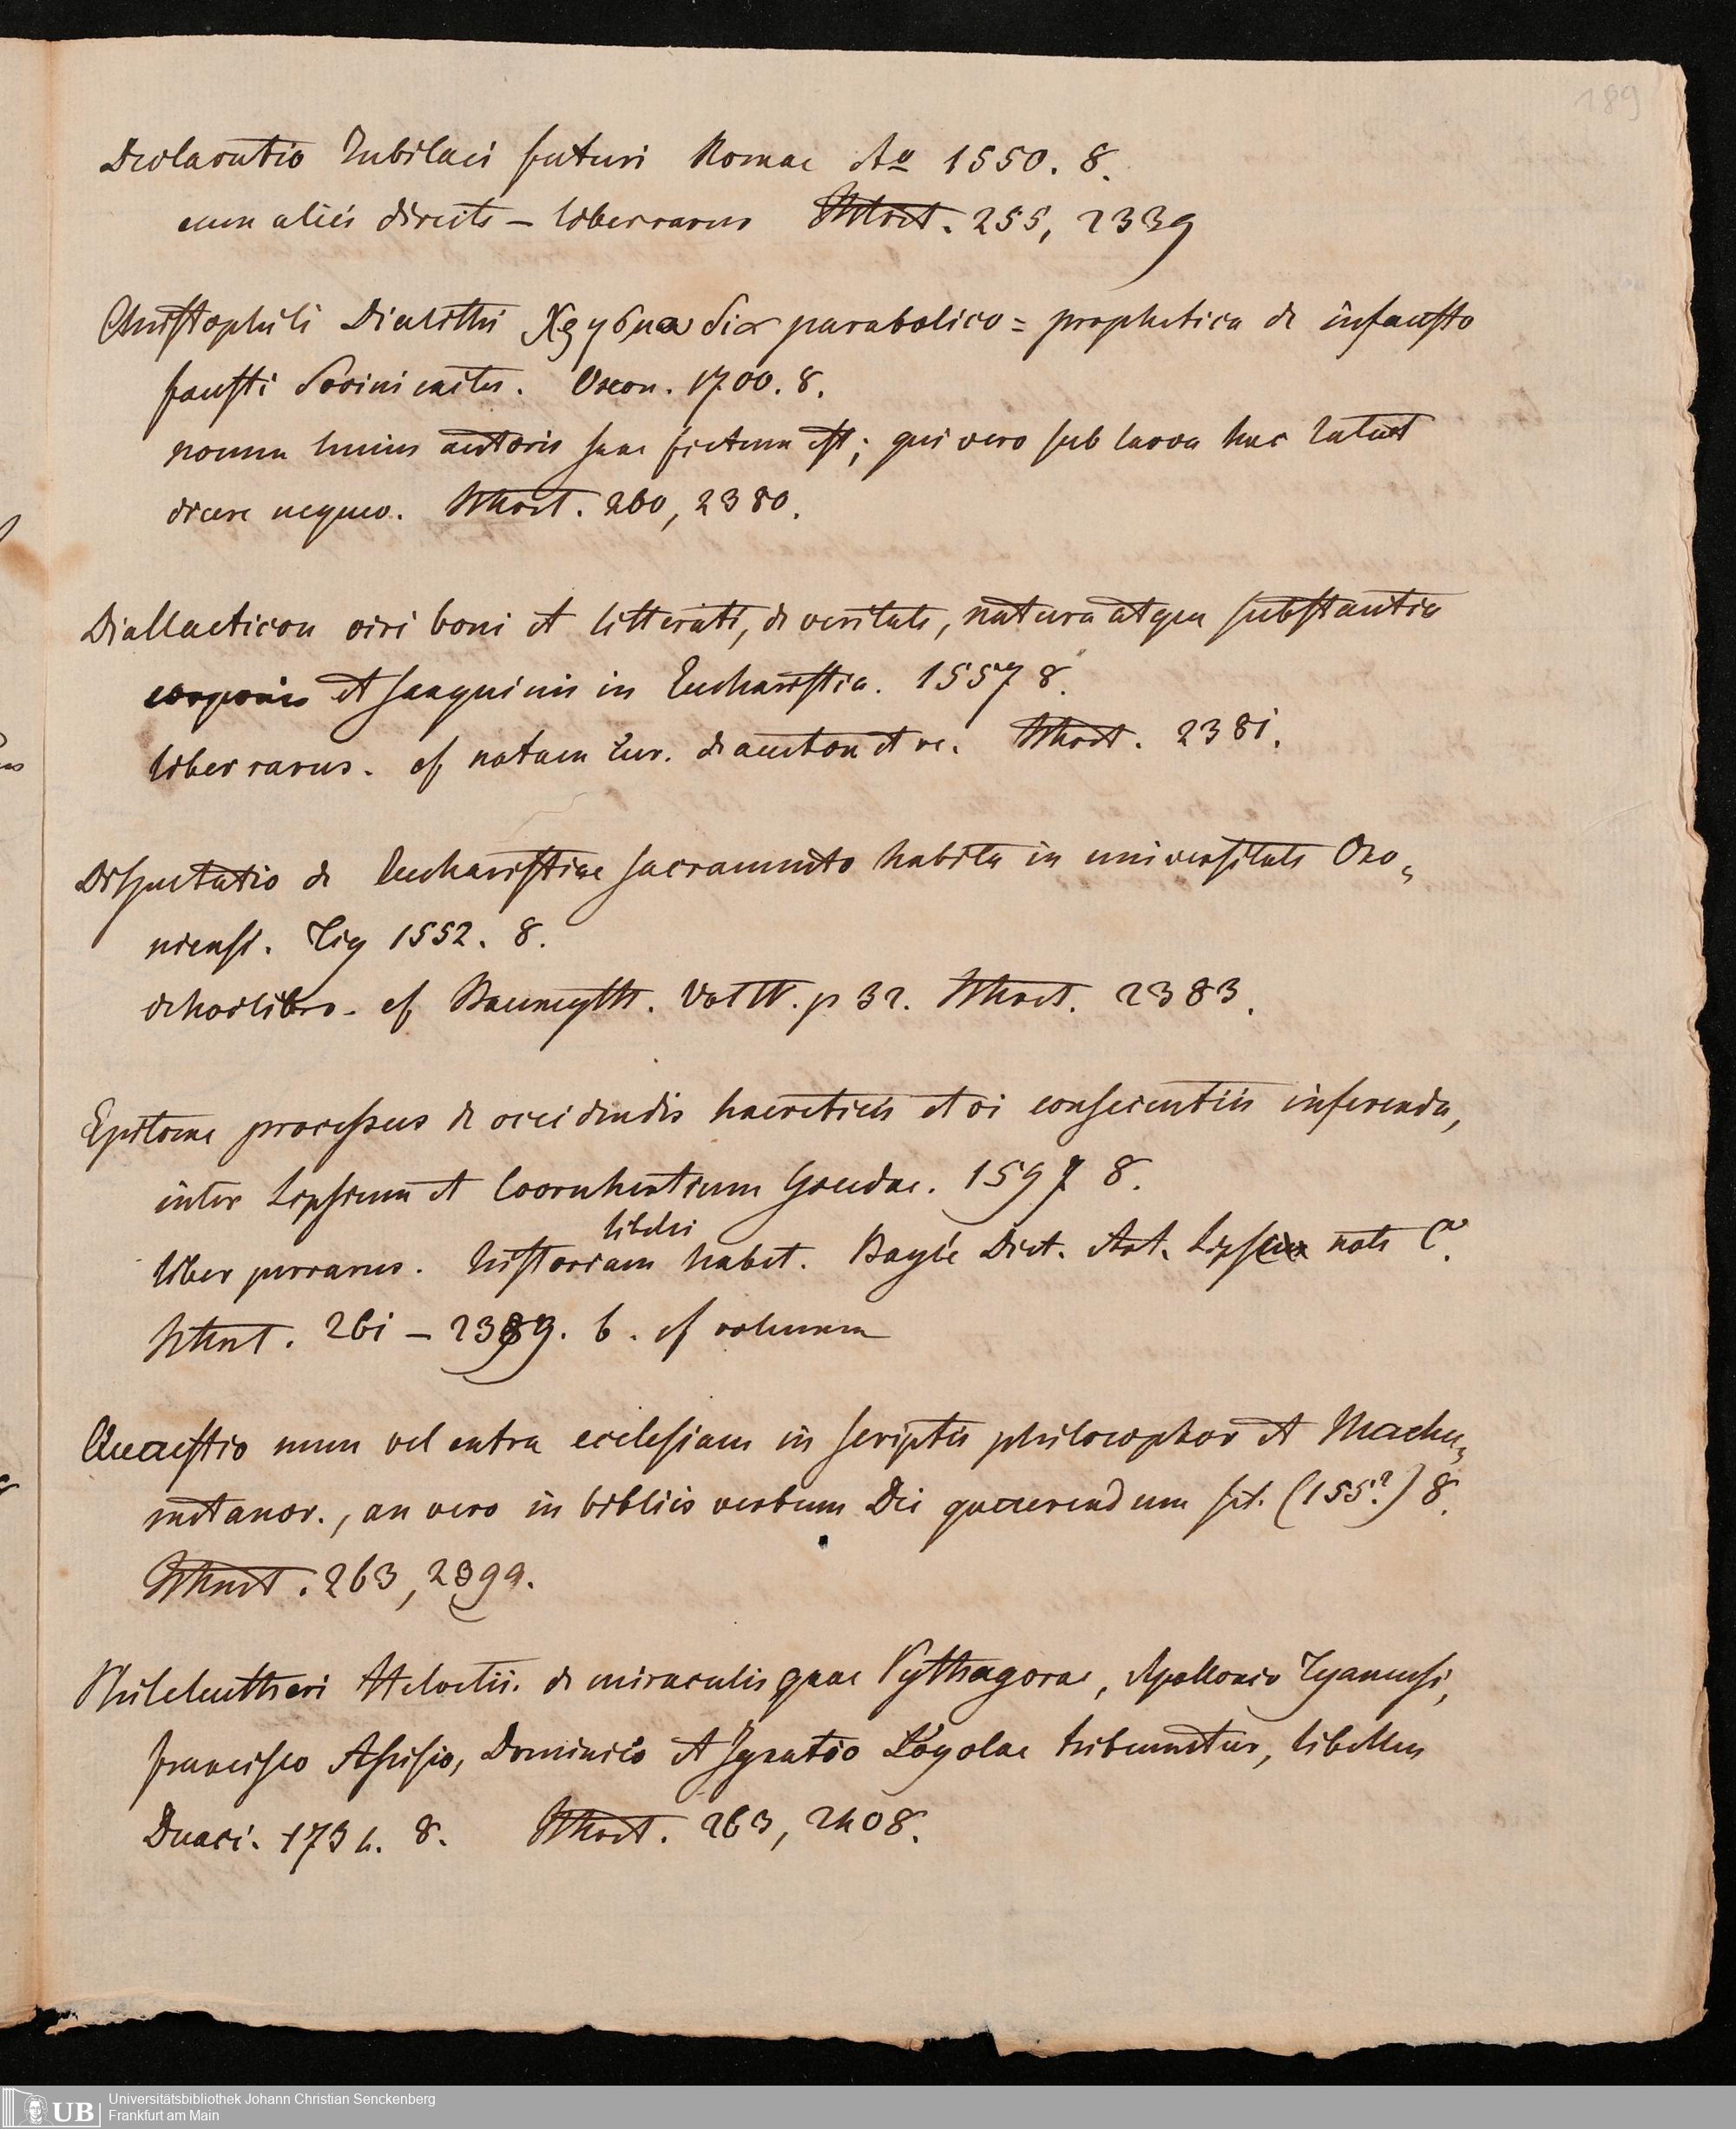 189
Declaratio Iubilaei futuri Romae Ao 1550. 8.
cum aliis direct – liber rarus 255, 2339
Christophili Dialithi parabolico = prophetica de infausto
fausti Socini casu. Oxon. 1700. 8.
nomen huius autoris sane fictum est; qui vero sub larva hac latuit
dicere nequeo. 260, 2380.
Diallacticon viri boni et litterati, de veritate, natura atque substantia
corporis et sanguinis in Eucharistia. 1557 8.
liber rarus. cf notam de autore et re. 2381.
Disputatio de Eucharistiae sacramento habita in universitate Oxo„
niensi. Tig 1552. 8.
de hoc libro. cf Baumgtt. Vol IV. p 32. 2383.
Epitome processus de occidendis haereticis et vi conscientiis inferenda,
inter Lipsium et Coornhertium Goudae. 1597 8.
liber perrarus. historiam libelli habet. Bayle Dict. Art. Lipse note C.
261 – 2389. b. cf volumen
Quaestio num vel extra ecclesiam in scriptis philosophor et Machu„
metanor., an vero in bibliis verbum Dei quaerendum sit. (155?) 8.
263, 2399.
Phileleutheri Helvetii. de miraculis quae Pythagorae, Apollonio Tyanensi,
francisco Assisio, Dominico et Ignatio Loyolae tribuuntur, libellus
Duaci. 1734. 8. 263, 2408.
UB
Universitätsbibliothek Johann Christian Senckenberg
Frankfurt am Main